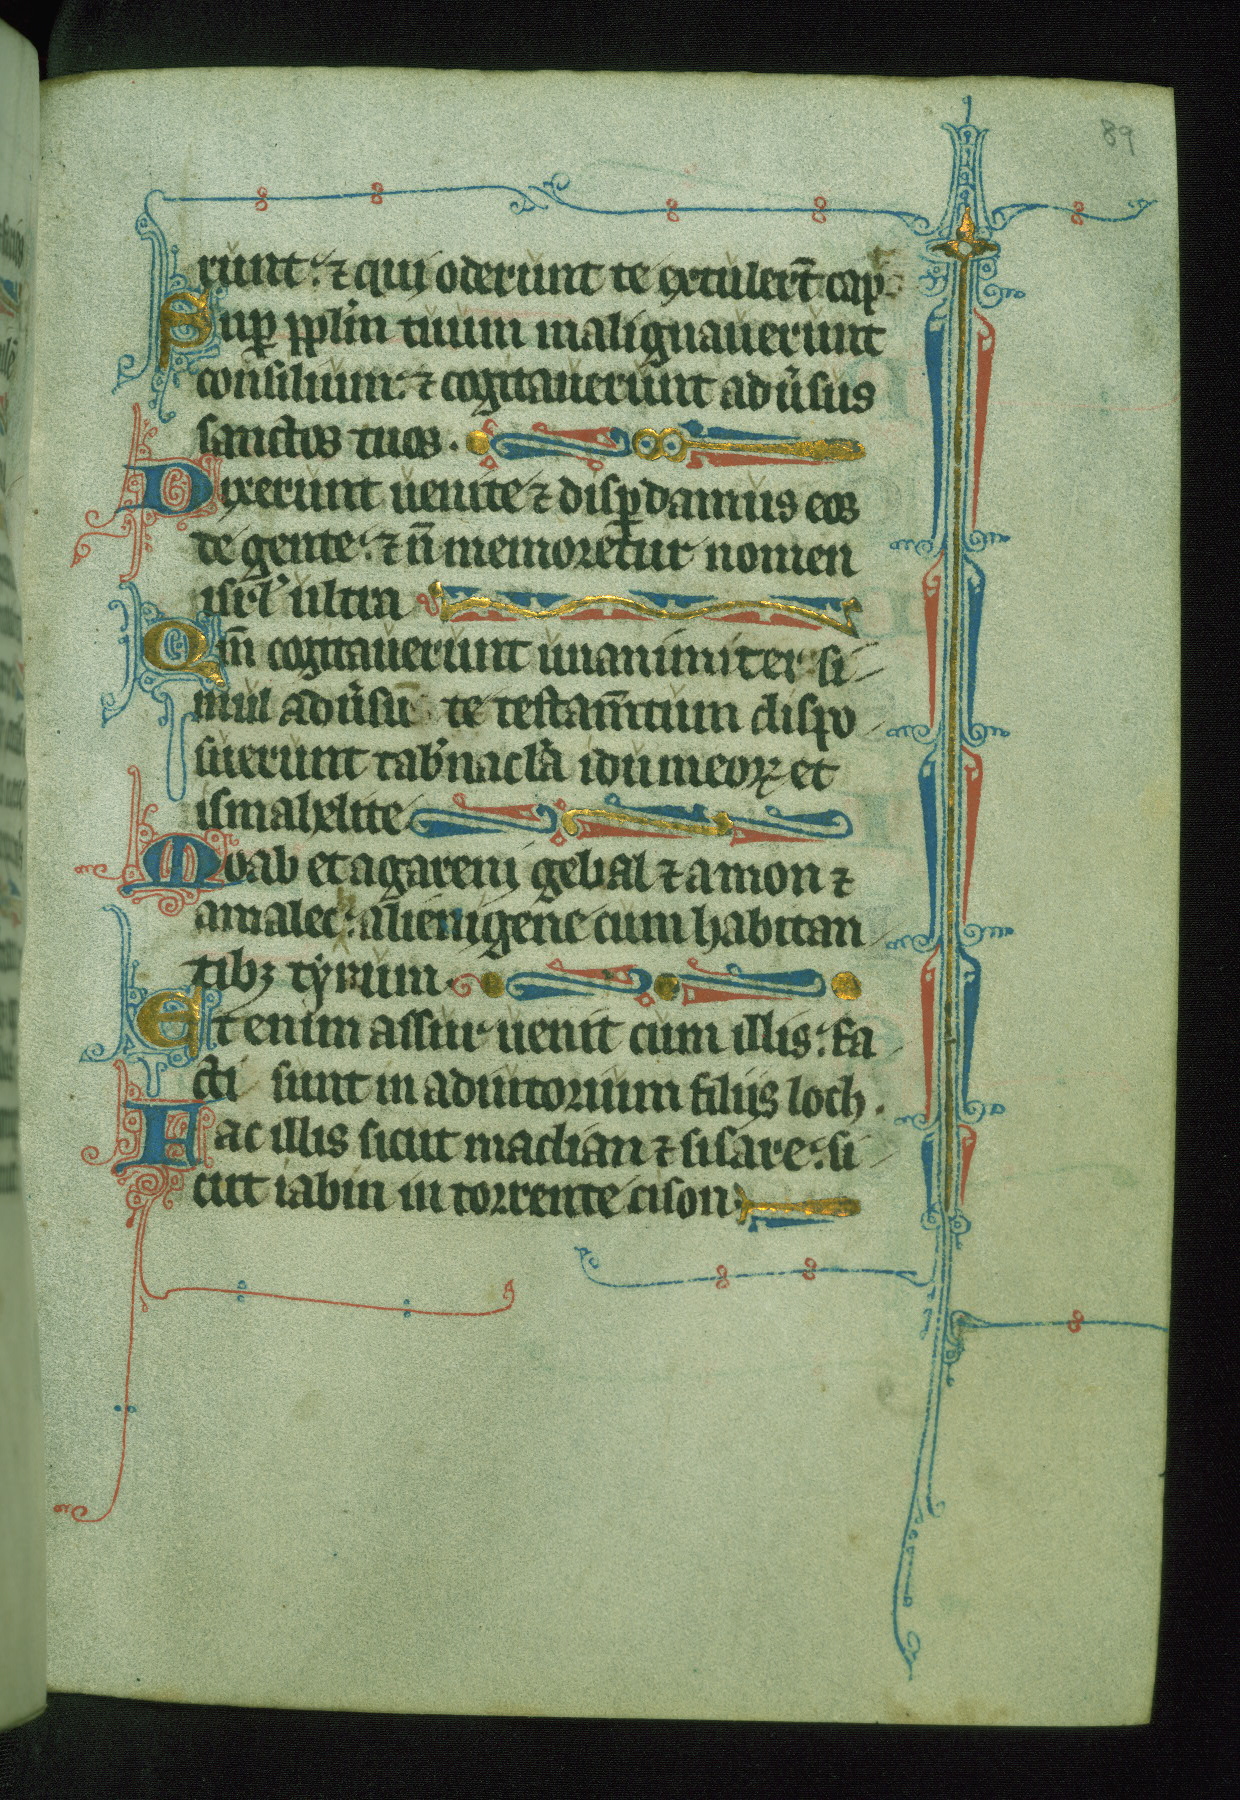 89
runt: ⁊ qui oderunt te extuler̄t cap̄
Sup̱ pp̱l'm tuum malignauerunt
consilium: ⁊ cogitauerunt adu'sus
sanctos tuos.
Dixerunt uenite ⁊ disp̱damus eos
de gente: ⁊ n̄ memoret̄ur nomen
isrl' ultra
Qm̄ cogitauerunt unanimiter si
mul adu'sū te testam̄tum dispo
suerunt tab'nacl'a idumeoꝝ et
ismahelite
Moab et agareni gebal ⁊ amon ⁊
amalec: alienigene cum habitan
tibꝫ tyrum.
Et enim assur uenit cum illis: fa
cti sunt in adiutorium filijs loth.
Fac illis sicut madian ⁊ sisare: si
cut iabin in torrente cison